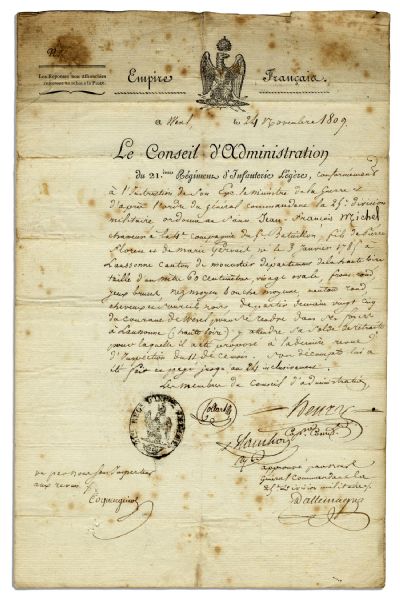 N.º
Les Réponses non affranchies
Empire Français.
a Wesel, le 24 Novembre 1809.
Le Conseil d'Administration
du 21.ème Régiment d'Infanterie Légère, conformément
à l'instruction de Son Exc. le Ministre de la Guerre et
d'après l'ordre du général commandant la 25e division
militaire ordonne au Sieur Jean François Michel
chasseur à la 4e compagnie du 5e Bataillon, fils de Pierre
et de Marie né le 3 Janvier 178
à Laussonne canton du monastier département de la haute loire
taille d'un mètre 60 centimètres, visage ovale, front rond
yeux bruns, nez moyen bouche moyenne menton rond
cheveux et sourcils noirs de partir demain vingt cinq
du courant de Wesel pour se rendre dans ses foyers
à Laussonne (haute loire) y attendre sa solde de retraite
pour laquelle il a été proposé à la dernière revue
d'Inspection du 11 de ce mois. Son décompte lui a
été fait et payé jusqu'au 24 inclusivement.
Les membres du Conseil d'administration
vu par nous Sous Inspecteur
aux revues
approuvé par nous
Général Commandant la
25e Division militaire
Dallemagne